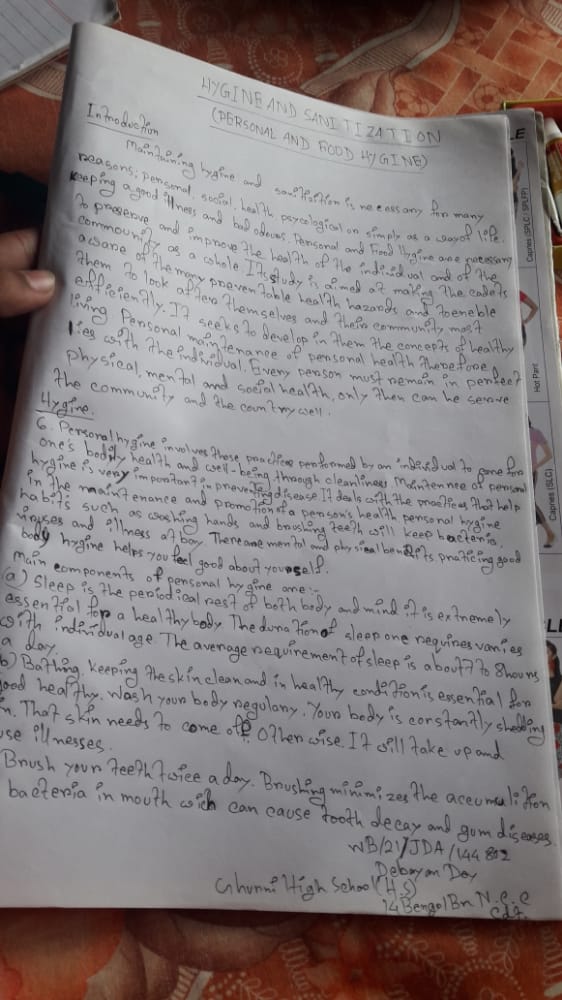 HYGINE AND SANITIZATION
(PERSONAL AND FOOD HYGINE)
Introduction
Maintaining hygine and sanitisition is necessary for many
reasons; personal, social, health, psycological on simply as a way of life.
keeping a good illness and bad odours. Personal and Food Hygine are necessary
to preserve and improve the health of the individual and of the
commounity as a whole. It study is aimed at making the cadets
aware of the many preventable health hazards and to eneble
them to look afters themselves and their community most
efficiently. It seeks to develop in them the concepts of healthy
living Personal maintenance of personal health therefore
lies with the individual. Every person must remain in perfect
physical, mental and social health, only then can he serve
the community and the country well.
Hygine.
6. Personal hygine involves those practices performed by an individual to care for
one's bodily health and well-being through cleanliness. Maintennee of personal
hygine is very important in preventing disease It deals with the practices that help
in the maintenance and promotion of a person's health personal hygine
habits such as washing hands and brushing teeth will keep bacteria,
viruses and illness at bay. There are mental and physical benefits praticing good
body hygine helps you feel good about yourself.
Main components of personal hygine are:-
(a) Sleep is the periodical rest of both body and mind it is extremely
essential for a healthy body The duration of sleep one requires varies
with individual age. The average requirement of sleep is about 7 to 8 hours
a day.
b) Bathing keeping the skin clean and in healthy condition is essential for
good healthy. wash your body regulary. Your body is constantly shedding
That skin needs to come off. Otherwise. It will take up and
illnesses.
Brush your teeth twice a day. Brushing minimizes the accumulition
bacteria in mouth wich can cause tooth decay and gum diseases.
WB/21/JDA/144812
Debayan Dey
Ghurni High School (H.S)
14 Bengal Bn N.C.C
Cdt.
LE
Capries (SPLC / SPLFP)
Hot Pant
Capries (SLC)
LL